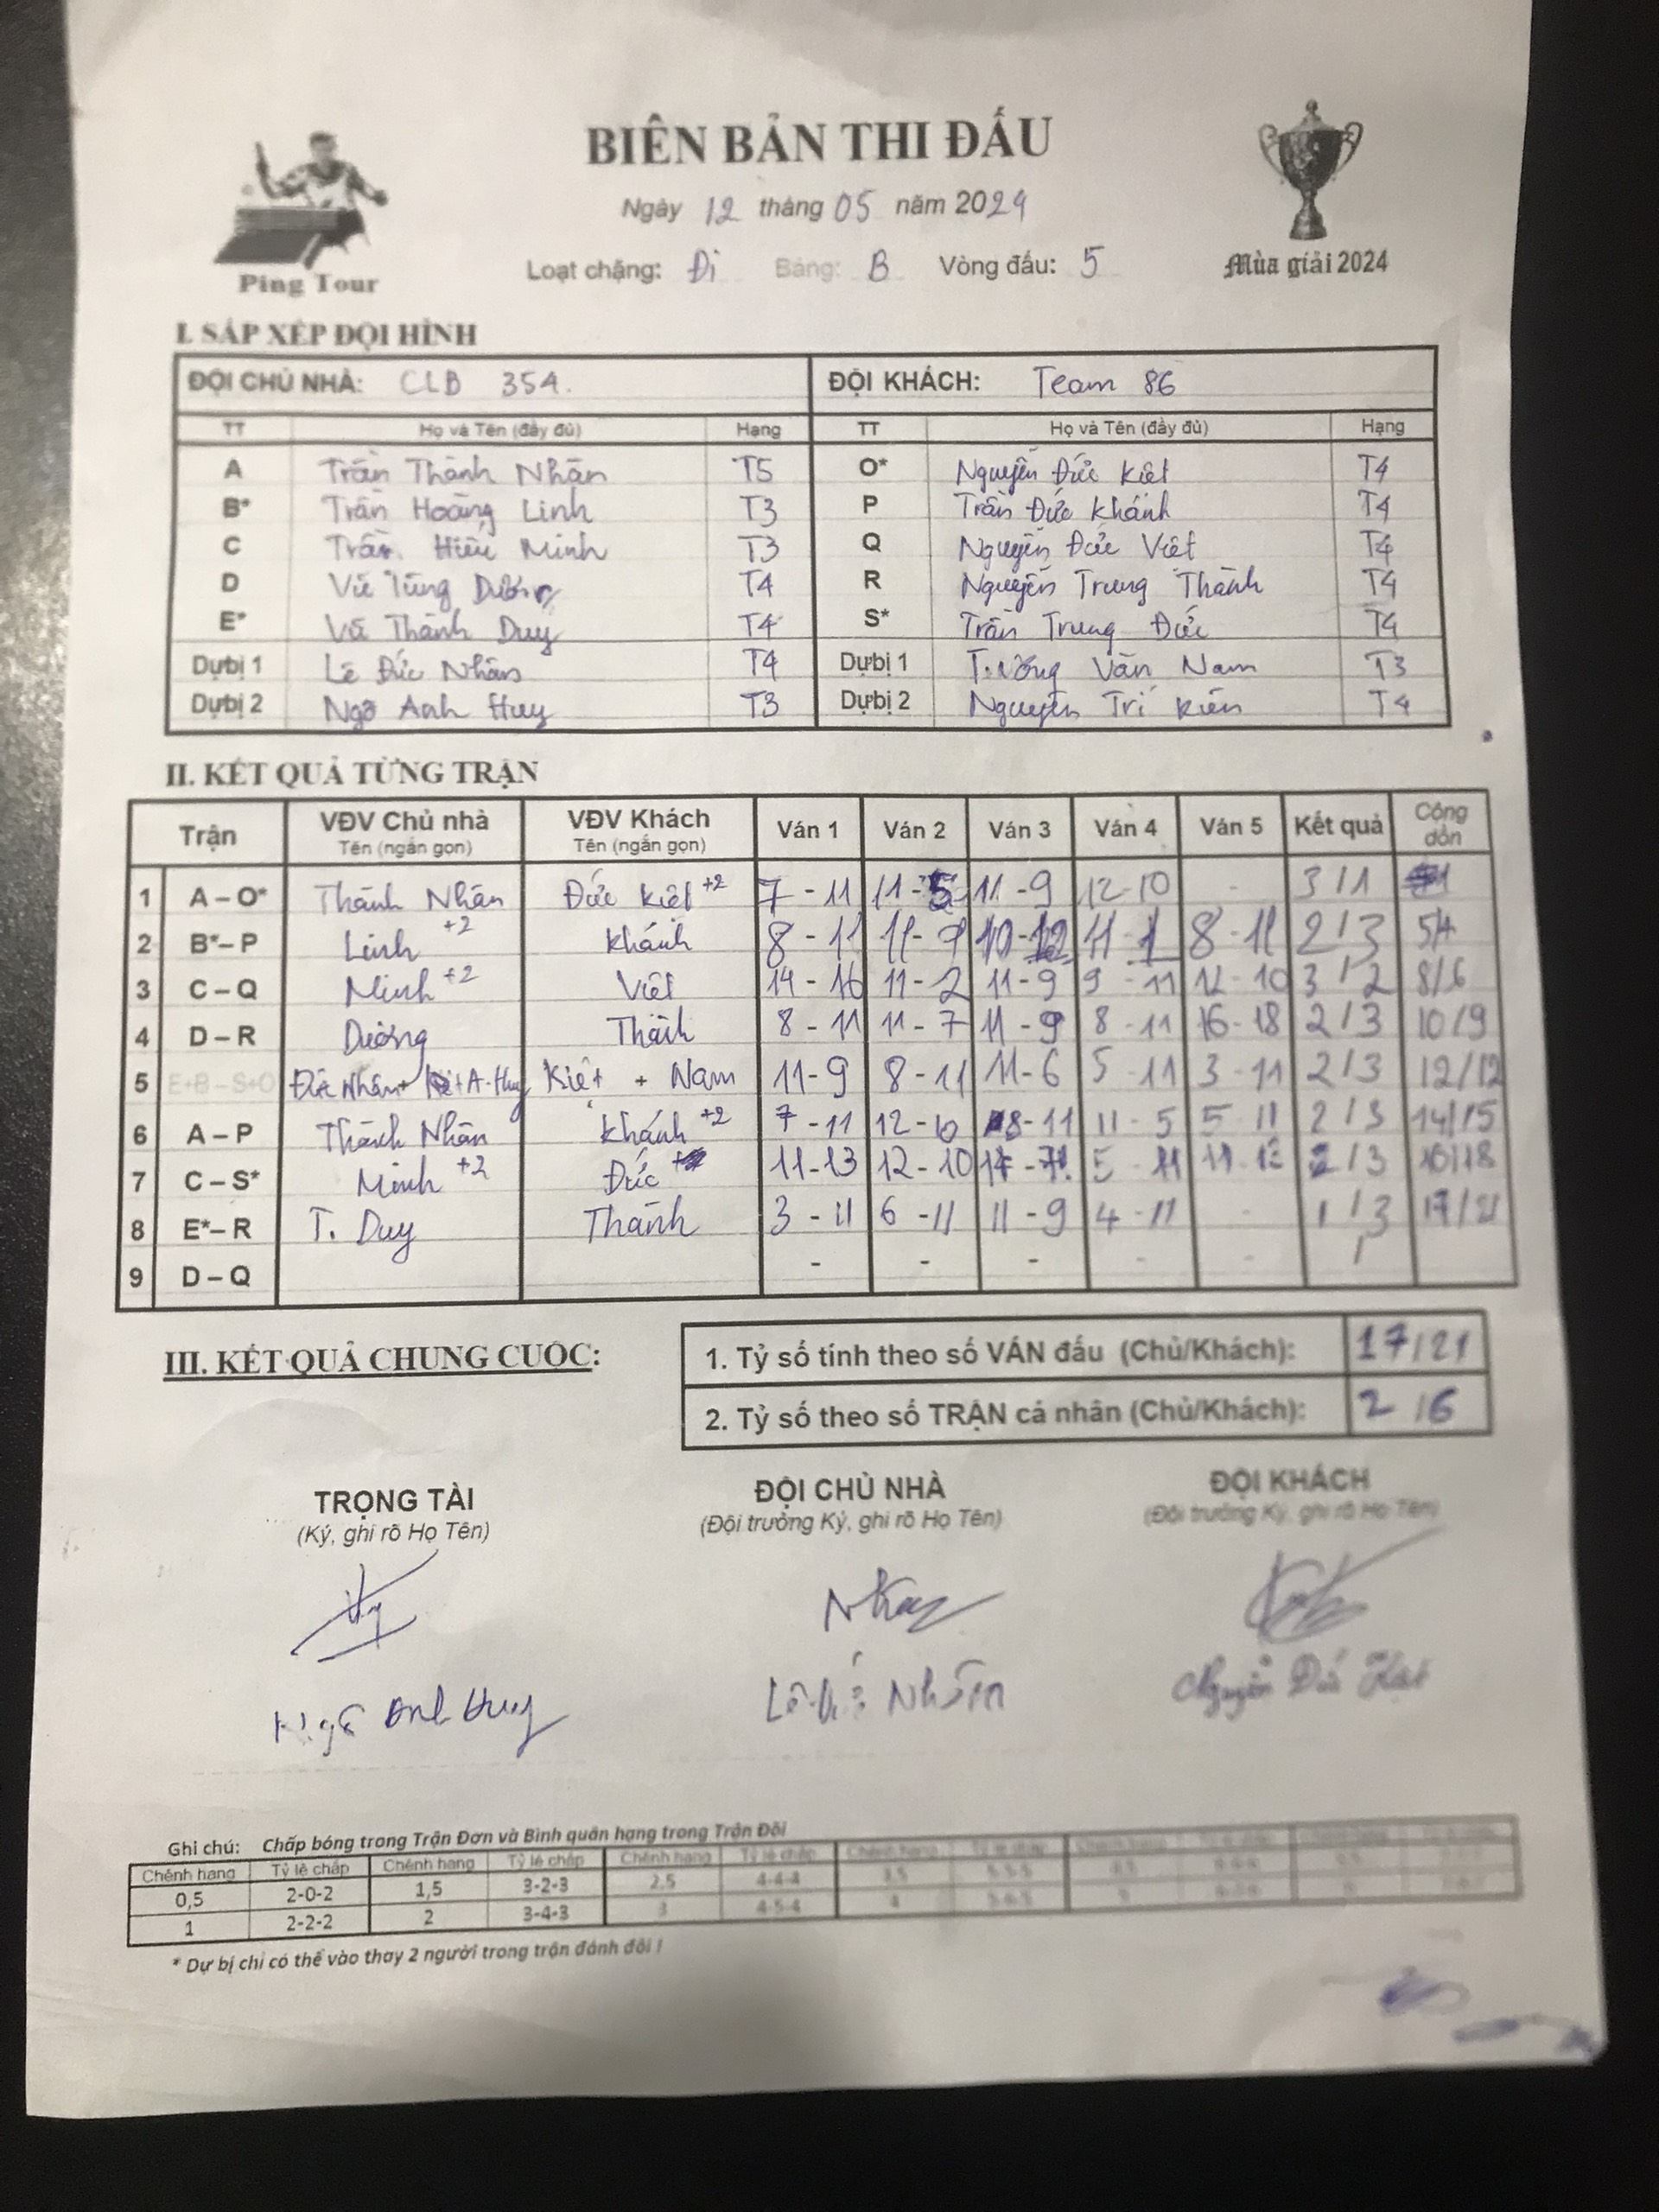 BIÊN BẢN THI ĐẤU
Ngày 12 tháng 05 năm 2024
Ping Tour
Loạt chặng: Đi Bảng: B Vòng đấu: 5
Mùa giải 2024
I. SẮP XẾP ĐỘI HÌNH
ĐỘI CHỦ NHÀ: CLB 354. ĐỘI KHÁCH: Team 86
TT Họ và Tên (đầy đủ) Hạng TT Họ và Tên (đầy đủ) Hạng
A Trần Thành Nhân T5 O* Nguyễn Đức Kiệt T4
B* Trần Hoàng Linh T3 P Trần Đức Khánh T4
C Trần Hiếu Minh T3 Q Nguyễn Đức Việt T4
D Vũ Tùng Dương T4 R Nguyễn Trung Thành T4
E* Vũ Thành Duy T4 S* Trần Trung Đức T4
Dự bị 1 Lê Đức Nhân T4 Dự bị 1 Trương Văn Nam T3
Dự bị 2 Ngô Anh Huy T3 Dự bị 2 Nguyễn Trí Kiên T4
II. KẾT QUẢ TỪNG TRẬN
Trận VĐV Chủ nhà VĐV Khách Ván 1 Ván 2 Ván 3 Ván 4 Ván 5 Kết quả Cộng dồn
Tên (ngắn gọn) Tên (ngắn gọn)
1 A – O* Thành Nhân Đức Kiệt +2 7 - 11 11 - 5 11 - 9 12 - 10 - 3 / 1
2 B* – P Linh +2 Khánh 8 - 11 11 - 9 10 - 12 11 - 1 8 - 11 2 / 3 5/4
3 C – Q Minh +2 Việt 14 - 16 11 - 2 11 - 9 9 - 11 12 - 10 3 / 2 8/6
4 D – R Dương Thành 8 - 11 11 - 7 11 - 9 8 - 11 16 - 18 2 / 3 10/9
5 E+B – S+O Đức Nhân + A. Huy Kiệt + Nam 11 - 9 8 - 11 11 - 6 5 - 11 3 - 11 2 / 3 12/12
6 A – P Thành Nhân Khánh +2 7 - 11 12 - 10 8 - 11 11 - 5 5 - 11 2 / 3 14/15
7 C – S* Minh +2 Đức 11 - 13 12 - 10 5 - 11 2 / 3 16/18
8 E* – R T. Duy Thành 3 - 11 6 - 11 11 - 9 4 - 11 - 1 / 3 17/21
9 D – Q - - - - - /
III. KẾT QUẢ CHUNG CUỘC:
1. Tỷ số tính theo số VÁN đấu (Chủ/Khách): 17/21
2. Tỷ số theo số TRẬN cá nhân (Chủ/Khách): 2 /6
TRỌNG TÀI ĐỘI CHỦ NHÀ ĐỘI KHÁCH
(Ký, ghi rõ Họ Tên) (Đội trưởng Ký, ghi rõ Họ Tên) (Đội trưởng Ký, ghi rõ Họ Tên)
Ngô Anh Huy Lê Đức Nhân Nguyễn Đức Kiệt
Ghi chú: Chấp bóng trong Trận Đơn và Bình quân hạng trong Trận Đôi
Chênh hạng Tỷ lệ chấp Chênh hạng Tỷ lệ chấp Chênh hạng Tỷ lệ chấp Chênh hạng Tỷ lệ chấp
0,5 2-0-2 1,5 3-2-3 2,5 4-4-4 3,5 5-5-5
1 2-2-2 2 3-4-3 3 4-5-4 4 5-6-5
* Dự bị chỉ có thể vào thay 2 người trong trận đánh đôi !